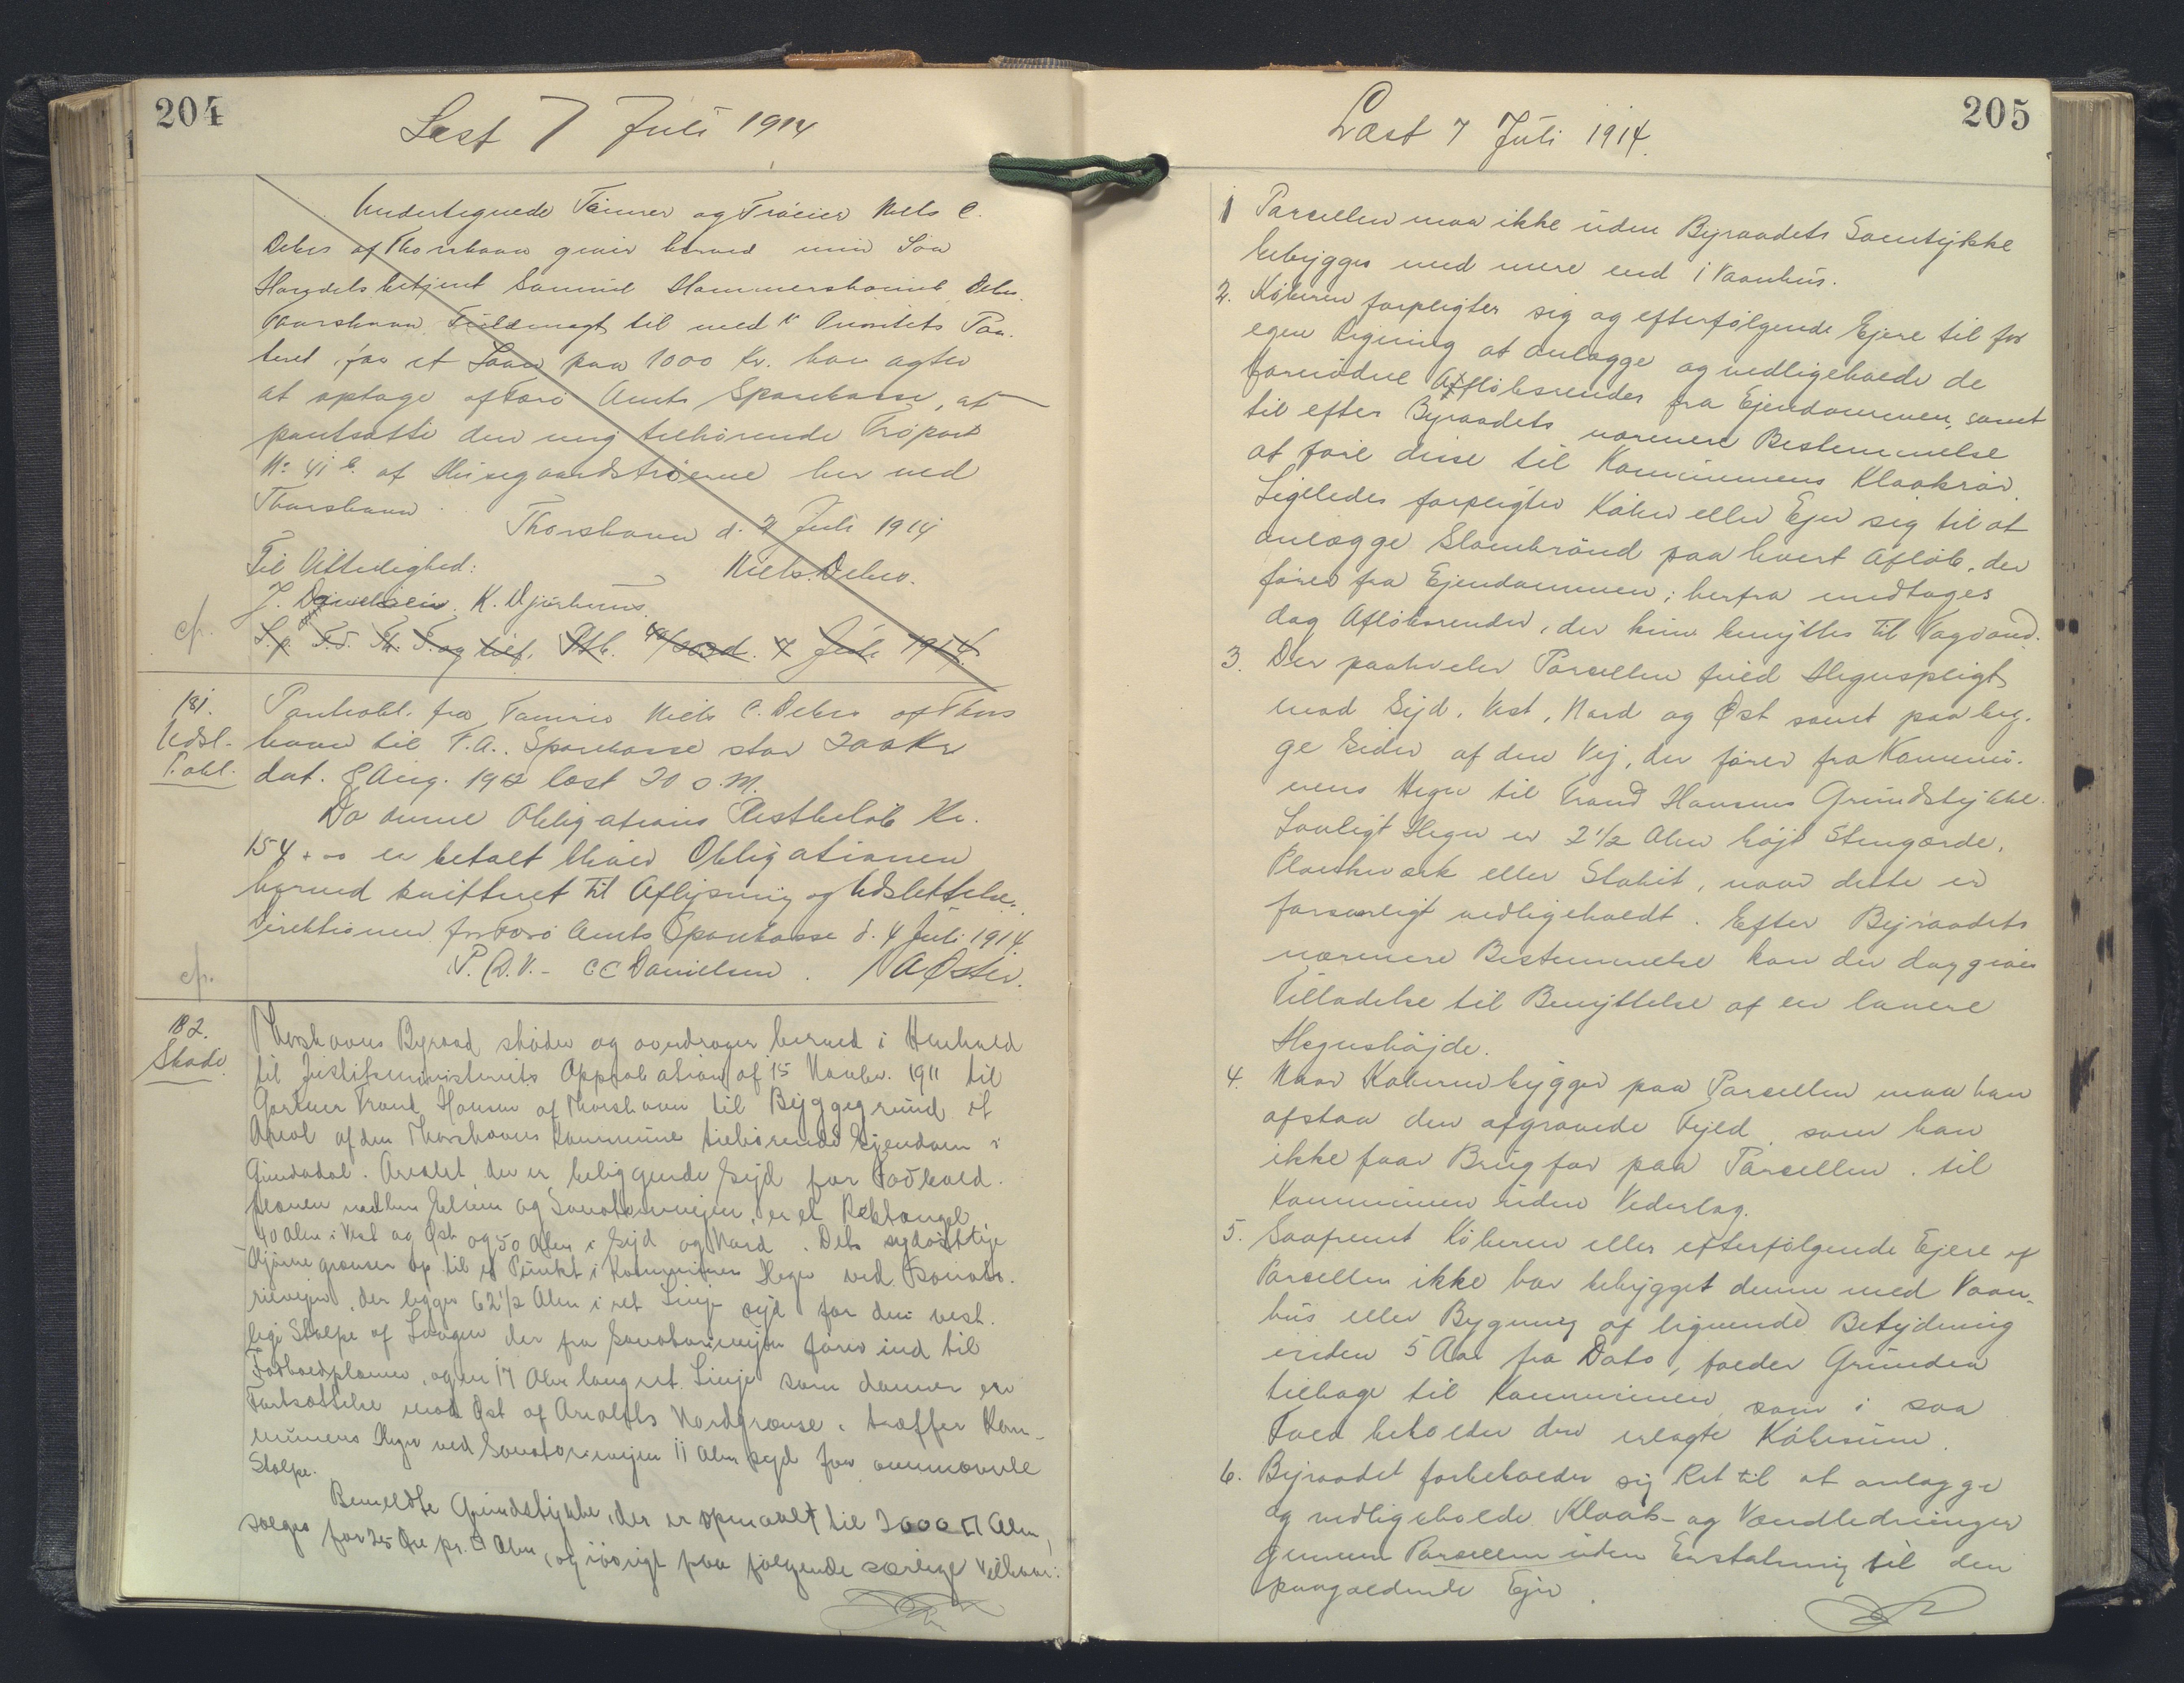 204
Læst 7 Juli 1914
Undertegnede Tømrer og Trøeier Niels C.
Debes af Thorshavn giver herved min Søn
Handelsbetjent Samuel Hammershaimb Debes
Thorshavn Fuldmagt til med 1' Prioritets Pan-
teret for et Laan paa 1000 Kr. han agter
at optage af Færø Amts Sparekasse, at
pantsætte den mig tilhørende Trøpart
No 41 b. af Husegaardstrøerne her ved
Thorshavn.
Thorshavn d. 2 Juli 1914
Til Vitterlighed: Niels. Debes.
J. Danielsen. K. Djurhuus.
cfr.
7 Juli 1914.
181.
Udsl.
P. obl.
Pantobl. fra Tømrer Niels C. Debes af Thors
havn til F.A. Sparekasse stor 200 Kr
dat. 8 Aug. 1912 læst 20 s. M.
Da denne Obligations Restbeløb Kr.
154.00 er betalt bliver Obligationen
herved kvitteret til Aflysning og Udslettelse.
Direktionen for Færø Amts Sparekasse d. 4 Juli 1914.
P. D. V. - CC Danielsen. A Øster.
cfr.
182.
Skøde
Thorshavns Byraad skøder og overdrager herved i Henhold
til Justitsministeriets Approbation af 15 Novbr. 1911 til
Gartner Trond Hansen af Thorshavn til Byggegrund et
Areal af den Thorshavns Kommune tilhørende Ejendom i
Gundadal. Arealet, der er beliggende Syd for Fodbold-
planen mellem Elven og Sanatorievejen, er et Rektangel
40 Alen i Vest og Øst og 50 Alen i Syd og Nord. Dets sydøstlige
Hjørne grænser op til et Punkt i Kommunens Hegn ved Sanato-
rievejen, der ligger 62 1/2 Alen i ret Linje syd for den vest-
lige Stolpe af Laagen der fra Sanatorievejen fører ind til
Fodboldplanen, og en 17 Alen lang ret Linje som danner en
Fortsættelse mod Øst af Arealets Nordgrænse, træffer Kom-
munens Hegn ved Sanatorievejen 11 Alen syd for ommeldte
Stolpe.
Bemeldte Grundstykke, der er opmaalt til 2000 □ Alen,
sælges for 25 Øre pr. □ Alen, og iøvrigt paa følgende særlige Vilkaar:
205
Læst 7 Juli 1914.
1 Parcellen maa ikke uden Byraadets Samtykke
bebygges med mere end 1 Vaanhus.
2. Køberen forpligter sig og efterfølgende Ejere til for
egen Regning at anlægge og vedligeholde de
fornødne Afløbsrender fra Ejendommen, samt
til efter Byraadets nærmere Bestemmelse
at føre disse til Kommunens Kloakrør.
Ligeledes forpligter Køber eller Ejer sig til at
anlægge Slambrønd paa hvert Afløb, der
fører fra Ejendommen; herfra undtages
dog Afløbsrender, der kun benyttes til Tagvand.
3. Der paahviler Parcellen fuld Hegnspligt
mod Syd, Vest, Nord og Øst samt paa beg-
ge Sider af den Vej, der fører fra Kommu-
nens Hegn til Trond Hansens Grundstykke.
Lovligt Hegn er 2 1/2 Alen højt Stengærde,
Plankeværk eller Stakit, naar dette er
forsvarligt vedligeholdt. Efter Byraadets
nærmere Bestemmelse kan der dog gives
Tilladelse til Benyttelse af en lavere
Hegnshøjde.
4. Naar Køberen bygger paa Parcellen maa han
afstaa den afgravede Fyld, som han
ikke faar Brug for paa Parcellen, til
Kommunen uden Vederlag.
5. Saafremt Køberen eller efterfølgende Ejere af
Parcellen ikke har bebygget denne med Vaan-
hus eller Bygning af lignende Betydning
inden 5 Aar fra Dato, falder Grunden
tilbage til Kommunen, som i saa
Fald beholder den erlagte Købesum.
6. Byraadet forbeholder sig Ret til at anlægge
og vedligeholde Kloak- og Vandledninger
gennem Parcellen uden Erstatning til den
paagældende Ejer.